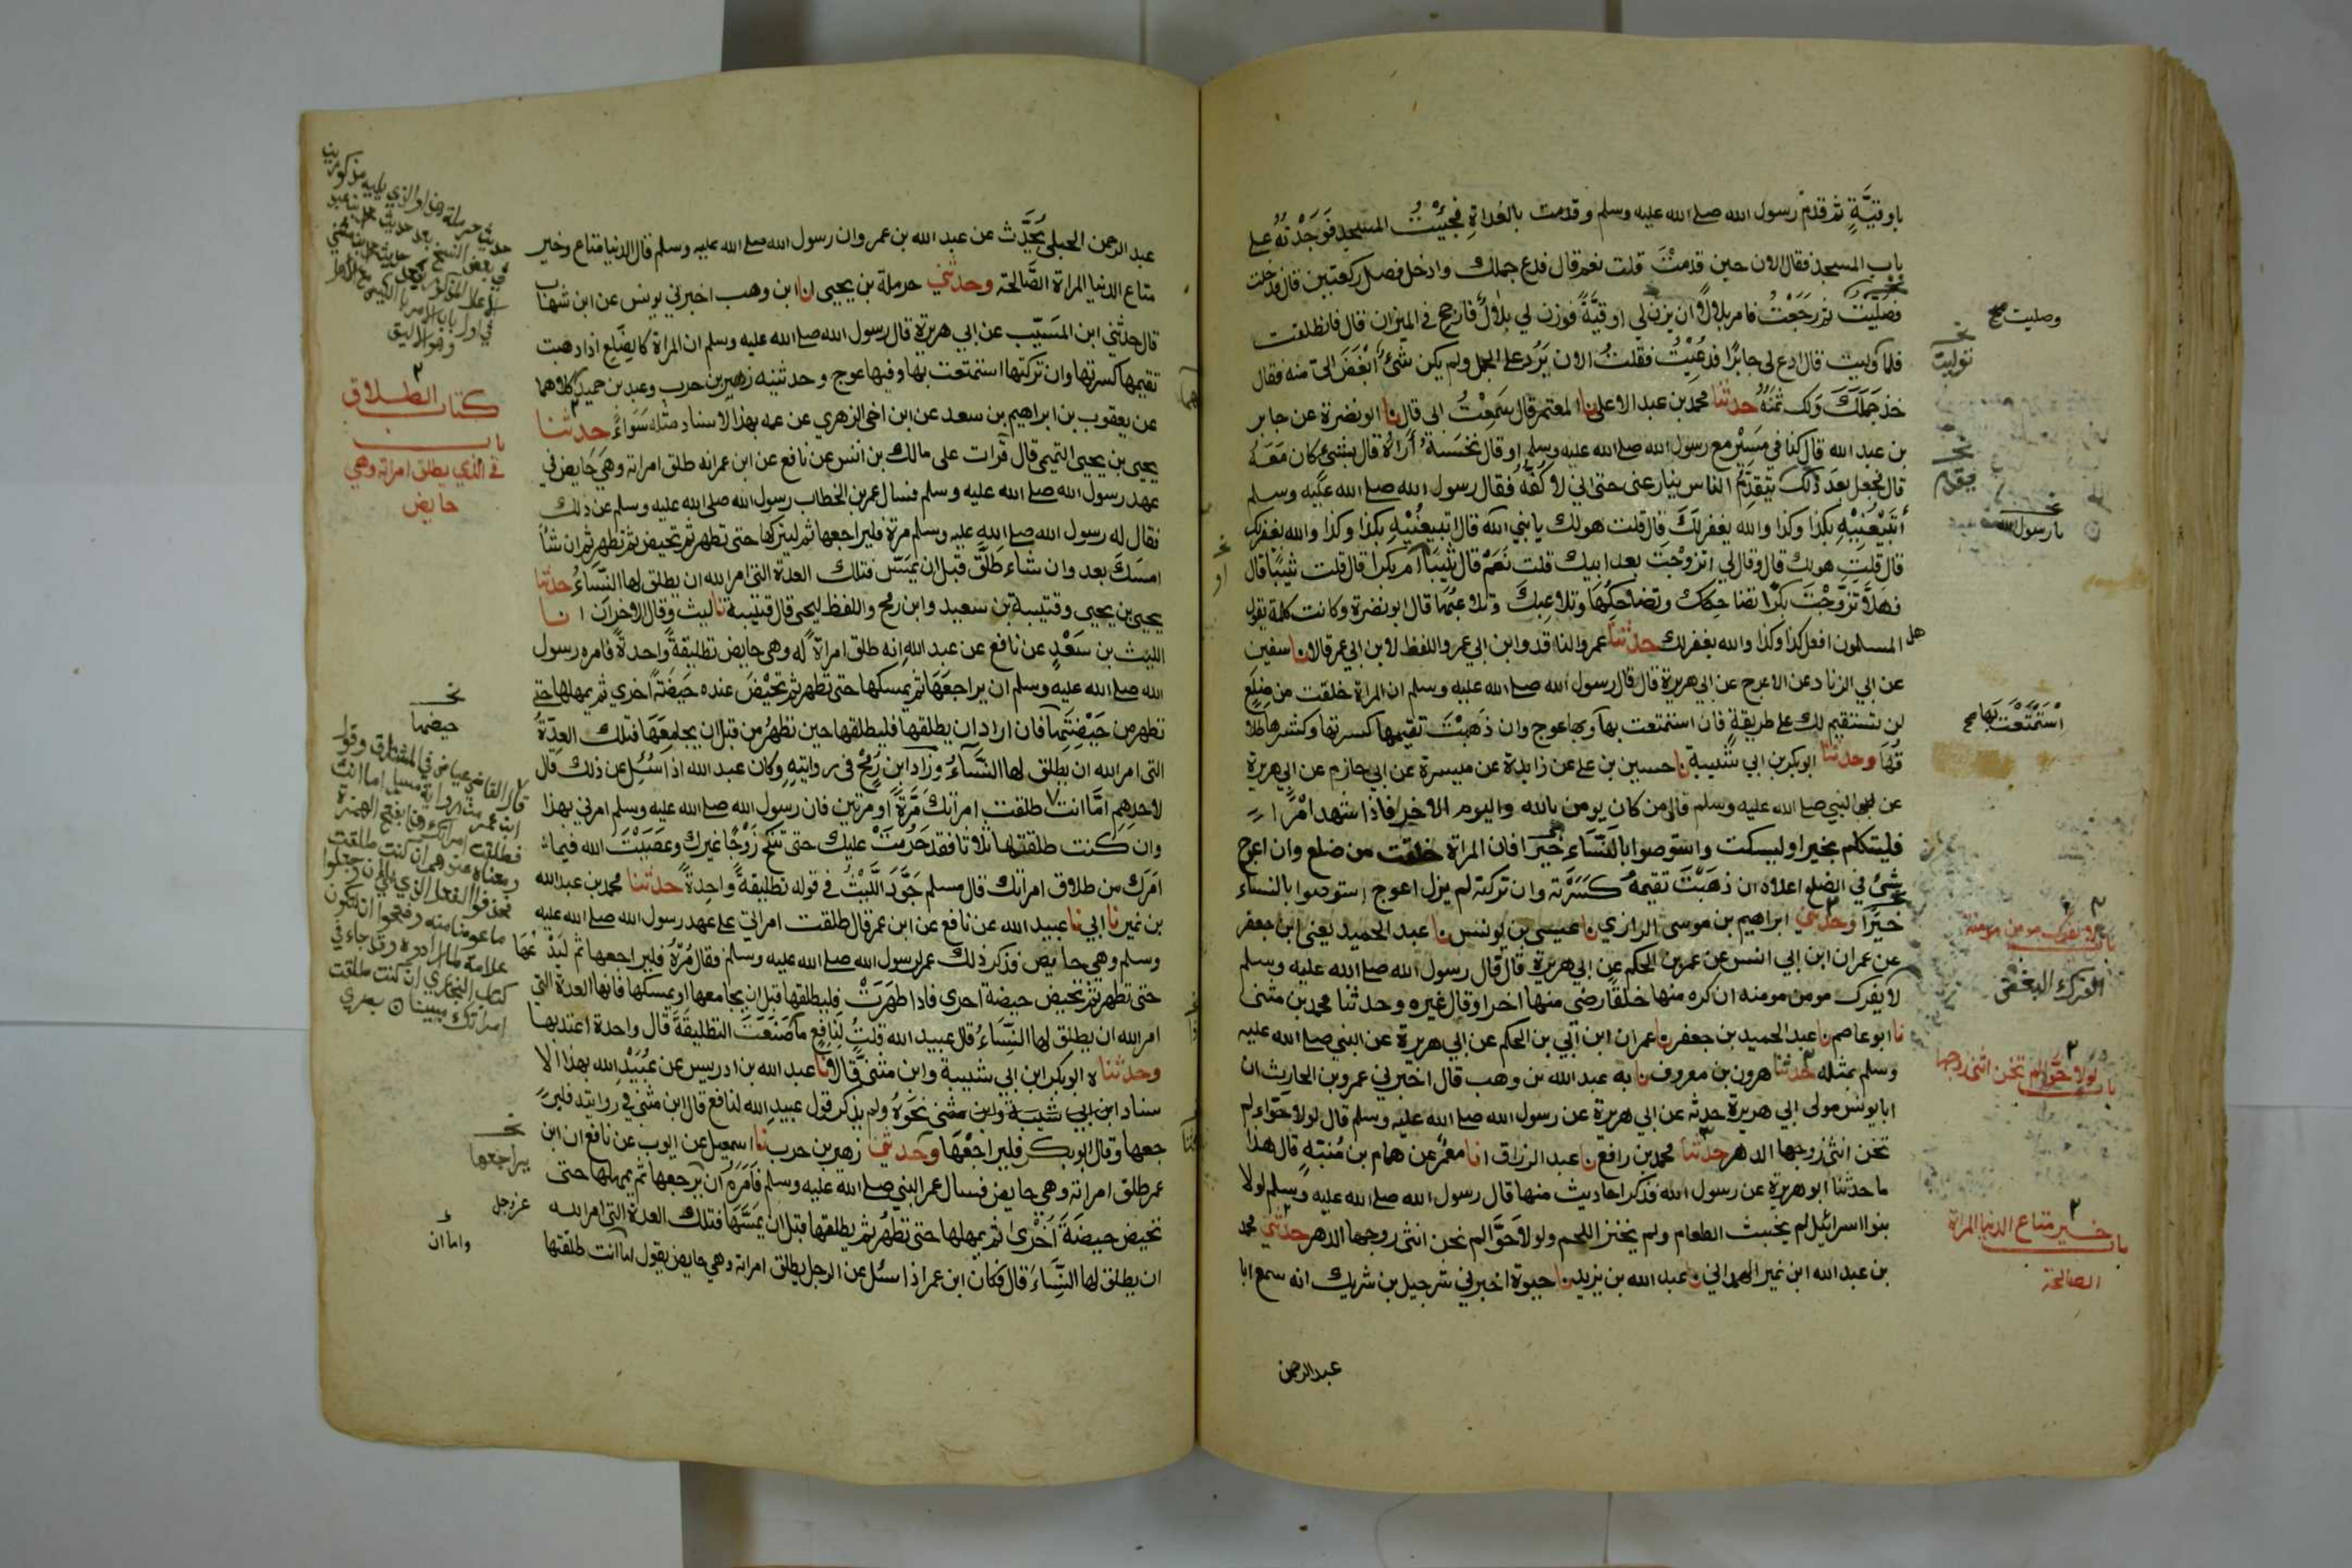 باوقيَّةٍ ثم قدم رسول الله صلى الله عليه وسلم وقدمت بالغداةِ فجِئْتُ المسجد فَوَجَدْتُهُ على
باب المسجد فقال الان حين قدمْتَ قلت نعم قال فدع جملك وادخل فصل ركعتين قال فدخلت
فصَلَّيت ثم رَجَعْتُ فامر بلالًا ان يزن لي اوقيَّةً فوزن لي بلالٌ فارجح في الميزان قال فانطلقت
فلما وليت قال ادع لي جابرًا فدُعِيْتُ فقلتُ الان يَرُد على الجمل ولم يكن شئٌ أَبْغَضَ الىّ منه فقال
خذ جَمَلَكَ ولك ثمَنُهُ حدثنا محمد بن عبد الاعلى نا المعتمر قال سَمِعْتُ ابى قال نا ابو نضرة عن جابر
بن عبد الله قال كنا في مَسِيْرٍ مع رسول الله صلى الله عليه وسلم
قال فجعل بعد ذلك يتقدم الناس ينازعنى حتى انى لاكفّهُ فقال رسول الله صلى الله عليه وسلم
أتَبِيْعُنِيْهِ بكذا وكذا والله يغفر لَكَ قال قلت هو لك يا نبي الله قال اتبيعُنيْهِ بكذا وكذا والله يغفر لك
قال قلت هو لك قال وقال لي اتزوَّجْتَ بعد ابيك قلت نَعَمْ قال ثَيِّبًا أم بكرا قال قلت ثيّبًا قال
فهَلَّا تَزَوَّجْتَ بِكْرًا تضاحِكك وتضاحِكُها وتلاعِبكَ وتلاعبُها قال ابو نضرة وكانت كلمة يقول
المسلمون افعل كذا وكذا والله يغفر لك حدثنا عمرو الناقد وابن ابي عمر واللفظ لابن ابي عمر قالا نا سفين
عن ابي الزناد عن الاعرج عن ابي هريرة قال قال رسول الله صلى الله عليه وسلم ان المراة خلقت من ضِلَعٍ
لن تستقيم لك على طريقةٍ فان استمتعت بها وبها عوج وان ذهَبْتَ تقيمها كسرتها وكسْرها طلا
قُهَا وحدثنا ابو بكر بن ابي شَيبة نا حسين بن على عن زايدة عن ميسرة عن ابي حازم عن ابي هريرة
عن النبي صلى الله عليه وسلم قال من كان يومن بالله واليوم الاخر فاذا شهد امْرًا
فليتكلم بخير او ليسكت واستوصوا بالنّسَاء خيرا فان المراة خلقت من ضلع وان اعوج
شئ في الضلع اعلاه ان ذهَبْتَ تقيمه كَسَرْته وان تركته لم يزل اعوج استوصوا بالنساء
خيرًا وحدثنى ابراهيم بن موسى الرازي نا عيسى بن يونس نا عبد الحميد يعنى ابن جعفر
عن عمران ابن ابي انس عن عمر بن الحكم عن ابي هريرة قال قال رسول الله صلى الله عليه وسلم
لا يفرك مومن مومنه ان كره منها خلقًا رضي منها اخر او قال غيره وحدثنا محمد بن مثنى
نا ابو عاصم نا عبد الحميد بن جعفر نا عمران ابن ابي عن عمر بن الحكم عن ابي هريرة عن النبي صلى الله عليه
وسلم بمثله حدثنا هرون بن معروف نا به عبد الله بن وهب قال اخبرني عمرو بن الحارث ان
ابا يونس مولى ابي هريرة حدثه عن ابي هريرة عن رسول الله صلى الله عليه وسلم قال لولا حَوّاء لم
تخن انثى زوجها الدهر حدثنا محمد بن رافع نا عبد الرزاق انا معمر عن همام بن مُنبّهٍ قال هذا
ما حدثنا ابو هريرة عن رسول الله فذكر احاديث منها قال رسول الله صلى الله عليه وسلم لولا
بنوا اسرائيل لم يخبث الطعام ولم يخنز اللحم ولولا حَوَّا لم تخن انثى زوجها الدهر حدثني محمد
بن عبد الله ابن نمير الهمداني نا عبد الله بن يزيد نا حيوة اخبرني شرحبيل بن شريك انه سمع ابا
عبد الرحمن
وصليت صح
توليت
فيقدم
يا رسول الله
اسْتَمْتَعْتَ بها صح
باب لا يفرك مومن مومنة
الفرك البغض
باب لولا حوّا لم تخن انثى زوجها
باب خير متاع الدنيا المراة
الصالحة
عبد الرحمن الحبلي يُحَدِّث عن عبد الله بن عمرو ان رسول الله صلى الله عليه وسلم قال الدنيا متاع وخير
متاع الدنيا المراة الصَّالحة وحدثني حرملة بن يحيى انا ابن وهب اخبرني يونس عن ابن شهاب
قال حدثني ابن المسَيّب عن ابي هريرة قال رسول الله صلى الله عليه وسلم ان المراة كالضِّلع اذا ذهبت
تقيمها كسرتها وان تركتها استمتعت بها وفيها عوج وحدثنيه زهير بن حرب وعبد بن حميد كلاهما
عن يعقوب بن ابراهيم بن سعد عن ابن اخى الزهري عن عمه بهذا الاسناد مثله سَوَاءً حدثنا
يحيى بن يحيى التميمى قال قرات على مالك بن انس عن نافع عن ابن عمر انه طلق امراته وهى حَايض في
عهد رسول الله صلى الله عليه وسلم فسال عمر بن الخطاب رسول الله صلى الله عليه وسلم عن ذلك
فقال له رسول الله صلى الله عليه وسلم مرهْ فليراجعها ثم ليتركها حتى تطهر ثم تحيض ثم تطهر ثم ان شأ
امسَكَ بعد وان شاء طَلَّقَ قبل ان يمَسّ فتلك العدة التى امر الله ان يطلق لها النّسَاءُ حدثنا
يحيى بن يحيى وقتيبة بن سعيد وابن رمح واللفظ ليحيى قال قتيبة نا ليث وقال الاخرَان انا
الليث بن سَعْدٍ عن نافع عن عبد الله انه طلق امراةً له وهى حايض تطليقةً واحدةً فامره رسول
الله صلى الله عليه وسلم ان يراجعَهَا ثم يمسكها حتى تطهر ثم تحيْضَ عنده حَيضةً اخرى ثم يمهلها حتى
تطهر من حَيْضِتِها فان اراد ان يطلقها فليطلقها حين تطهُر من قبل ان يجامعَهَا فتلك العدّةُ
التى امر الله ان يطلق لها النّسَآءُ وزاد ابن رُمْحٍ في روايتهِ وكان عبد الله اذا سُئِلَ عن ذلك قال
لاحدِهِم امَّا انت طلقت امرأتكَ مَّرةً او مرتين فان رسول الله صلى الله عليه وسلم امرني بهذا
وان كنت طلقتها ثلاثا فقد حَرُمَتْ عليك حتى تنكح زَوْجًا غيرك وعَصَيْتَ الله فيما
امَرَك من طلاق امراتك قال مسلم جَوَّدَ اللّيْثُ في قوله تطليقةً واحِدةً حدثنا محمد بن عبد الله
بن نمير نا ابي نا عبيد الله عن نافع عن ابن عمر قال طلقت امراتي على عهد رسول الله صلى الله عليه
وسلم وهي حايض فذكر ذلك عمر لرسول الله صلى الله عليه وسلم فقال مُرْهُ فليراجعها ثم ليَدْعْهَا
حتى تطهر ثم تحيض حيضة اخرى فاذا طهَرَتْ فليطلقها قبل ان يجامعها او يمسكها فانها العدة التى
امر الله ان يطلق لها النّسَاءُ قال عبيد الله قلتُ لنافعٍ ما صَنَعَتَ التطليقَة قال واحدة اعتد بها
وحدثناه ابو بكر ابن ابي شيبة وابن مثنىّ قالا نا عبد الله بن ادريس عن عُبَيْد الله بهذا الا
سناد ابن ابي شيبة وابن مثنى نَحْوَهُ ولم يذكر قول عبيد الله لنافع قال ابن مثنى في روايته فلير
جعها وقال ابو بكر فليراجعْهَا وحدثني زهير بن حرب نا اسمعيل عن ايوب عن نافع ان ابن
عمر طلق امراته وهي حايض فسال عمر النبي صلى الله عليه وسلم فَامَرَهُ ان يرجعها ثم يمهلها حتى
تحيض حيضَةً اُخْرَى ثم يمهلها حتى تطهُر ثم يطلقها قبل ان يمَسَّهَا فتلك العدة التى امر الله
ان يطلق لها النِّسَاءَ قال فكان ابن عمر اذا سُئل عن الرجل يطلق امراته وهي حايض يقول اما انت طلقتها
كتاب الطلاق
باب
في الذي يطلق امراته وهي
حايض
حيضها
قال القاضي عياض في المشارق
يراجعها
عز وجل
واما ان